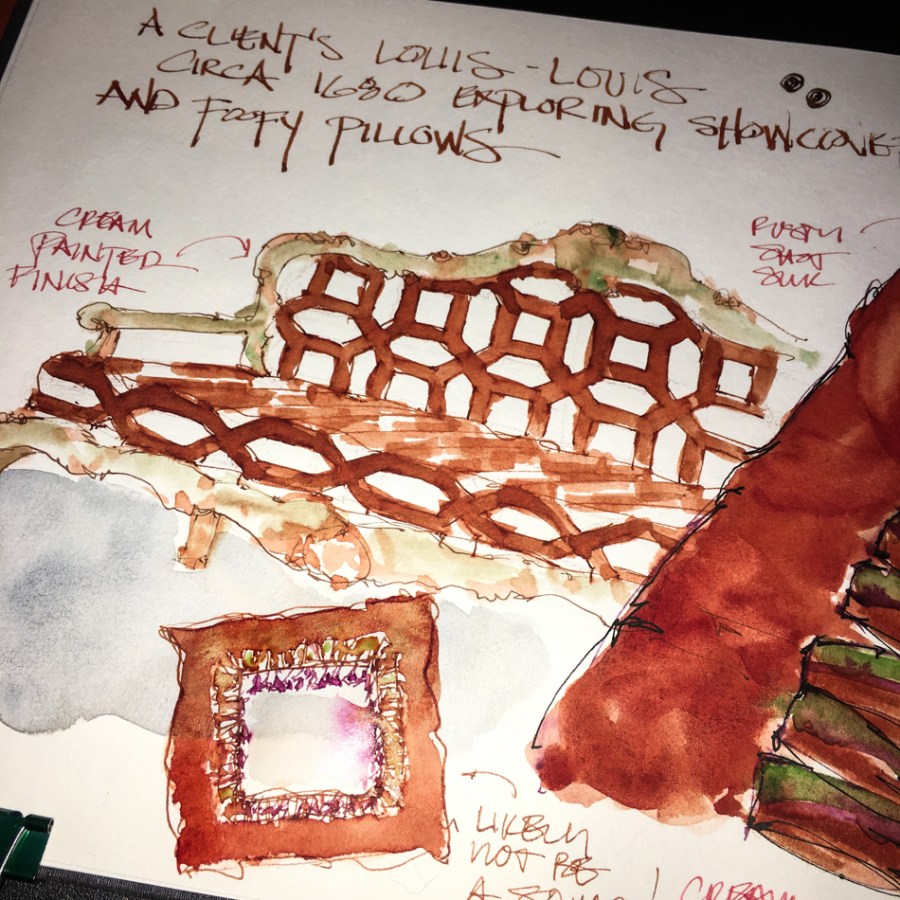 A CLIENT'S LOUIS-LOUIS
CIRCA 1680 EXPLORING SHOWCOVE
AND FOOFY PILLOWS
CREAM
PAINTED
FINISH
SILK
LIKELY
NOT BE
A
CREAM